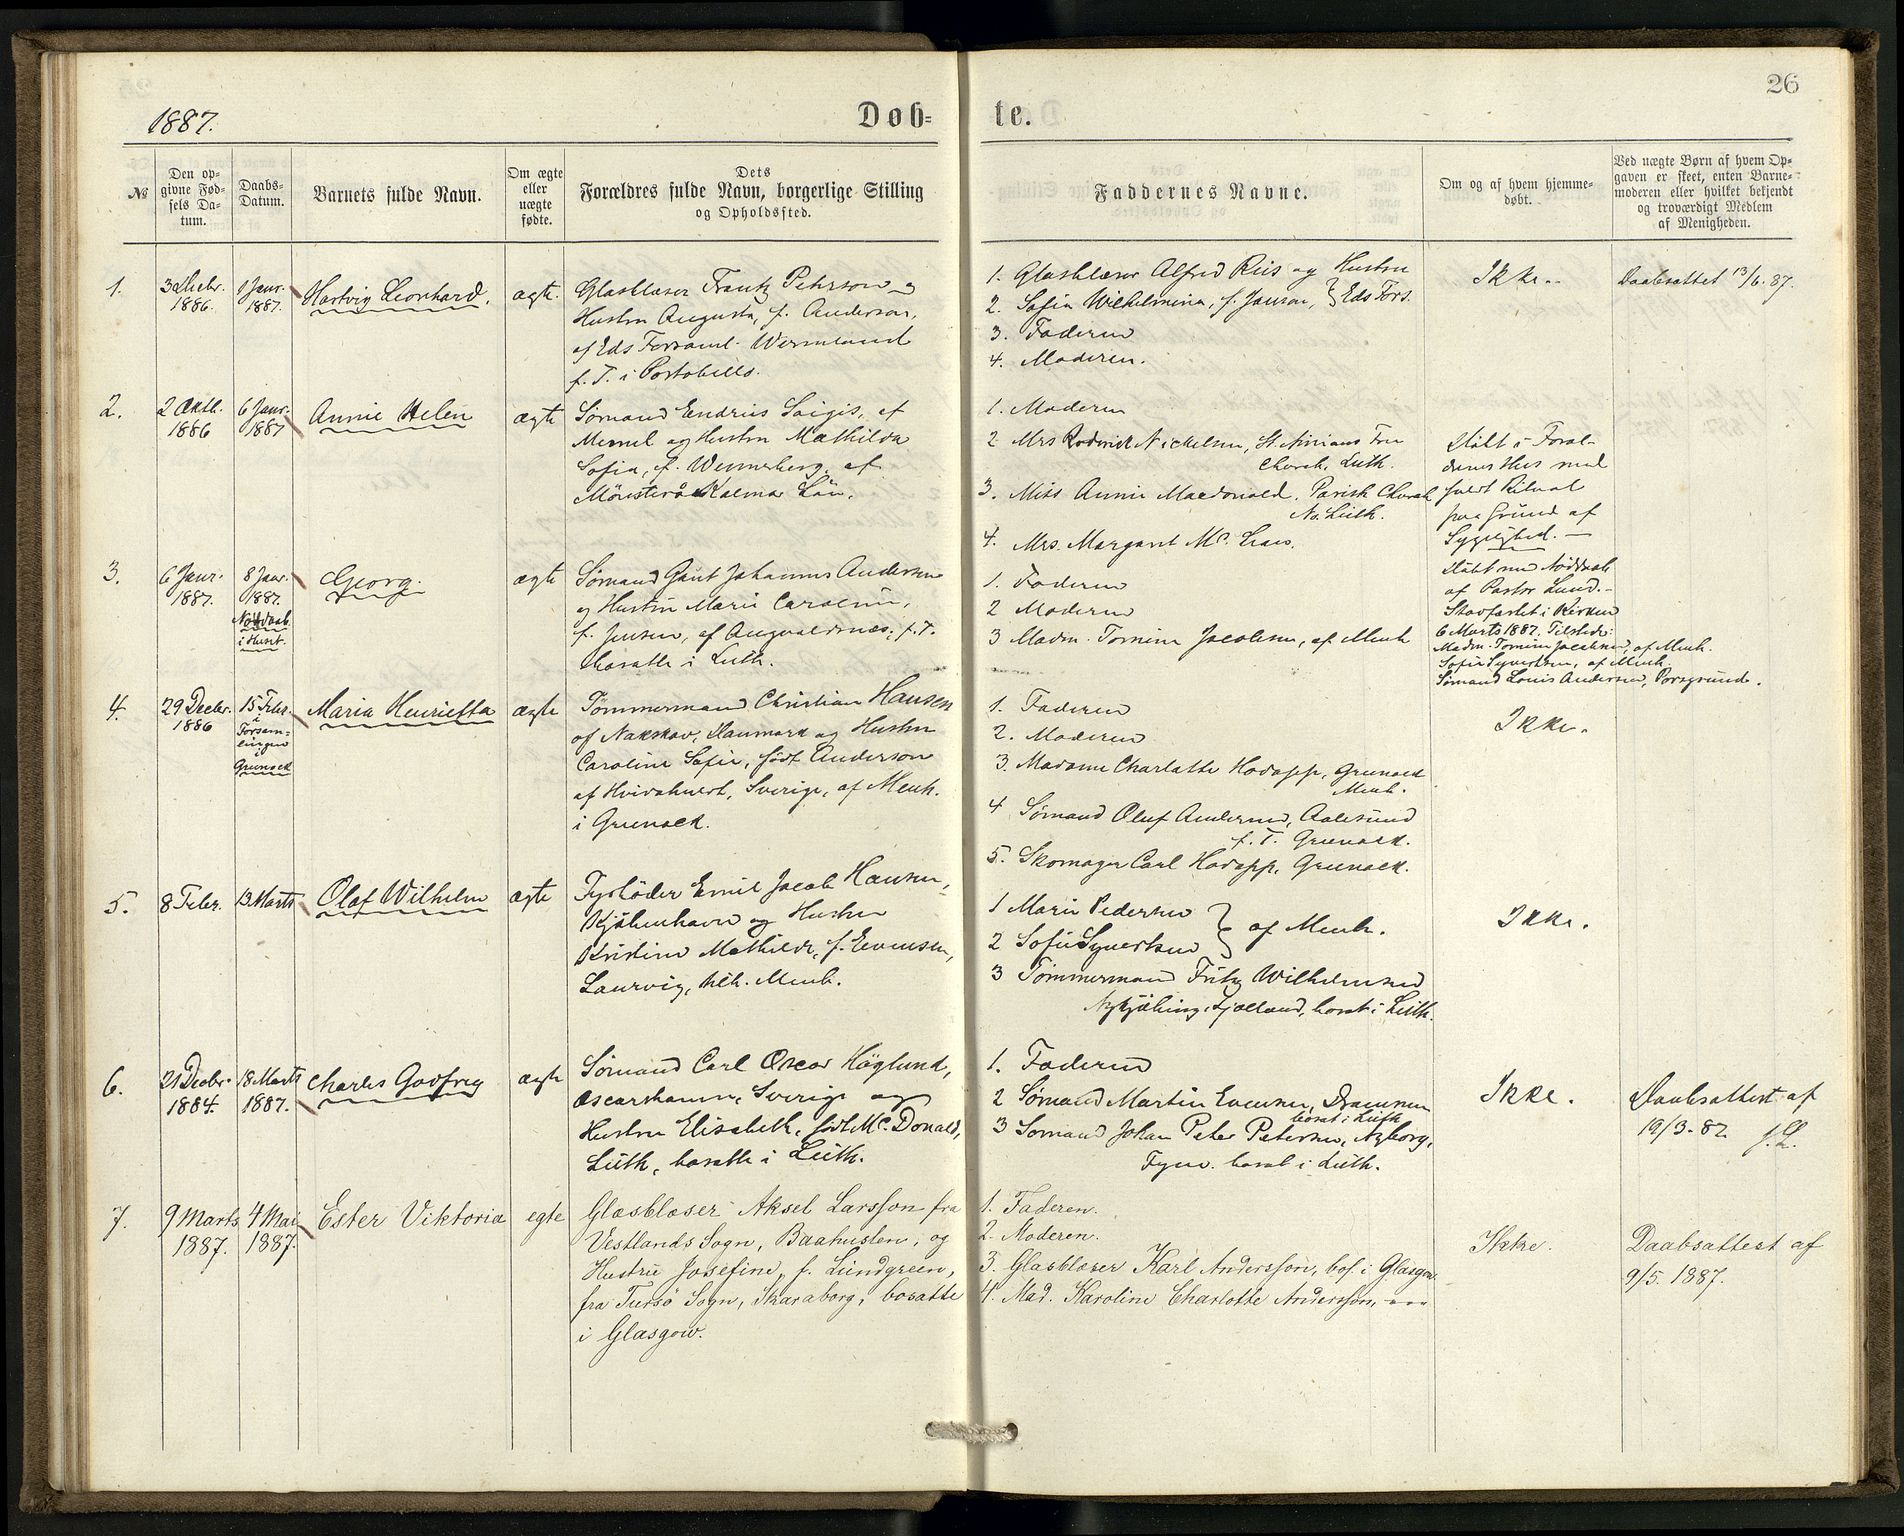 1887.
Døb=
№
Den op-
givne Fød-
sels Da-
tum.
Daabs-
Datum.
Barnets fulde Navn.
Om ægte
eller
uægte
fødte.
Dets
Forældres fulde Navn, borgerlige Stilling
og Opholdssted.
1.
3 Decbr.
1886.
1 Janr.
1887.
Hartvig Leonhard.
ægte.
Glasblæser Frantz Peterson og
Hustru Augusta, f. Anderson,
af Eds Forsaml. Wermland
f. T. i Portobello.
2.
2 Oktb.
1886
6 Janr.
1887
Annie Helen
ægte
Sømand Endrius Saigis, af
Memel og Hustru Mathilda
Sofia, f. Wennerberg, af
Mönsterås Kalmar Län.
3.
6 Janr.
1887.
8 Janr.
1887.
Nøddaab
i Huset.
Georg.
ægte
Sømand Gaut Johannes Andersen
og Hustru Marie Caroline,
f. Jensen, af Augvaldsnes, f. T.
bosatte i Leith.
4.
29 Decbr.
1886
15 Febr.
i
Forsam=
lingen
i
Greenock
Maria Henrietta
ægte
Tømmermand Christian Hansen
af Nakskov, Danmark og Hustru
Caroline Sofie, født Anderson
af Hvidahult, Sverige, af Menh.
i Greenock.
5.
8 Febr.
13 Marts
Olaf Wilhelm
ægte
Fyrbøder Emil Jacob Hansen,
Kjøbenhavn og Hustru
Kristine Mathilde, f. Evensen,
Laurvig, hlh. Menh.
6.
21 Decbr.
1884.
18 Marts
1887.
Charles Godfrey
ægte
Sømand Carl Oscar Höglund,
Oscarshamn, Sverige og
Hustru Elisabeth, født Mc. Donald,
Leith, bosatte i Leith.
7.
9 Marts
1887.
4 Mai
1887.
Ester Viktoria
egte
Glasblæser Aksel Larsson fra
Vestlands Sogn, Baahuslen, og
Hustru Josefine, f. Lundgreen,
fra Tursö Sogn, Skaraborg, bosatte
i Glasgow.
26
te.
Faddernes Navne.
Om og af hvem hjemme-
døbt.
Ved uægte Børn af hvem Op-
gaven er skeet, enten Barne-
moderen eller hvilket bekjendt
og troværdigt Medlem
af Menigheden.
1. Glasblæser Alfred Riis og Hustru
2. Sofia Wilhelmina, f. Janson, } Eds Fors.
3. Faderen
4. Moderen.
Ikke..
Daabsattest 13/6. 87.
1. Moderen
2 Mrs Roderick Nickelsen, St. Ninians Free
Church, Leith.
3. Miss Annie Macdonald. Parish Church
No. Leith.
4. Mrs. Margaret Mc.
Døbt i Foræl-
drenes Hus med
fuldt Ritual
paa Grund af
Sygelighed. —
1. Faderen
2 Moderen
3 Madm. Tomine Jacobsen, af Menh
Døbt med Nøddaab
af Pastor Lund.-
Stadfæstet i Kirken
6 Marts 1887. Tilstede:
Madm. Tomine Jacobsen, af Menh.
Sofie Syvertsen, af Menh
Sømand Louis Andersen, Porsgrund.
1. Faderen
2. Moderen
3. Madame Charlotte Hodapp, Greenock
Menh.
4 Sømand Oluf Andersen, Aalesund
f. T. Greenock.
5. Skomager Carl Hodapp, Greenock.
Ikke.
1 Marie Pedersen
2 Sofie Syvertsen } af Menh.
3 Tømmermand Fritz Wilhelmsen
Nykjøbing, Sjælland, bosat i Leith.
Ikke.
1. Faderen
2 Sømand Martin Evensen, Drammen
bosat i Leith
3 Sømand Johan Peter Petersen, Nyborg,
Fyen. bosat i Leith.
Ikke.
Daabsattest af
19/3-87. J. L.
1. Faderen.
2. Moderen.
3. Glasblæser Karl Andersson, bos. i Glasgow
4. Mad. Karoline Charlotte Andersson,
Ikke.
Daabsattest af
9/5. 1887.